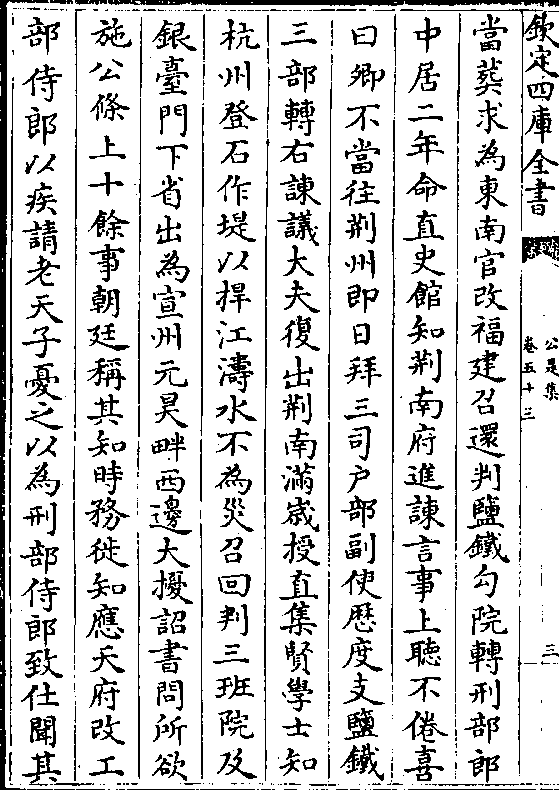 欽定四庫全書
公是集
卷五十三
三
當葬求為東南官改福建召還判鹽鐵勾院轉刑部郎
中居二年命直史館知荆南府進諫言事上聽不倦喜
曰卿不當往荆州即日拜三司户部副使歴度支鹽鐵
三部轉右諫議大夫復出荆南滿嵗授直集賢學士知
杭州登石作堤以捍江濤水不為災召回判三班院及
銀臺門下省出為宣州元昊畔西邊大擾詔書問所欲
施公條上十餘事朝廷稱其知時務徙知應天府改工
部侍郎以疾請老天子憂之以為刑部侍郎致仕聞其